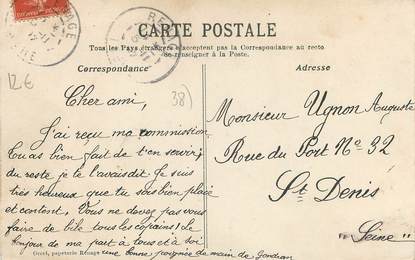 CARTE POSTALE
Tous les Pays étrangers n'acceptent pas la Correspondance au recto
se renseigner à la Poste.
Correspondance
Adresse
12 €
38)
Cher ami,
J'ai reçu ma commission.
Tu as bien fait de t'en servir;
du reste je te l'avais dit. Je suis
très heureux que tu sois bien placé
et content. Vous ne devez pas vous
faire de bile tous les copains! Le
bonjour de ma part à tous et à toi
une bonne poignée de main de Gondran
Monsieur Ugnon Auguste
Rue du Port No 32
St Denis
"Seine"
papeterie Renage